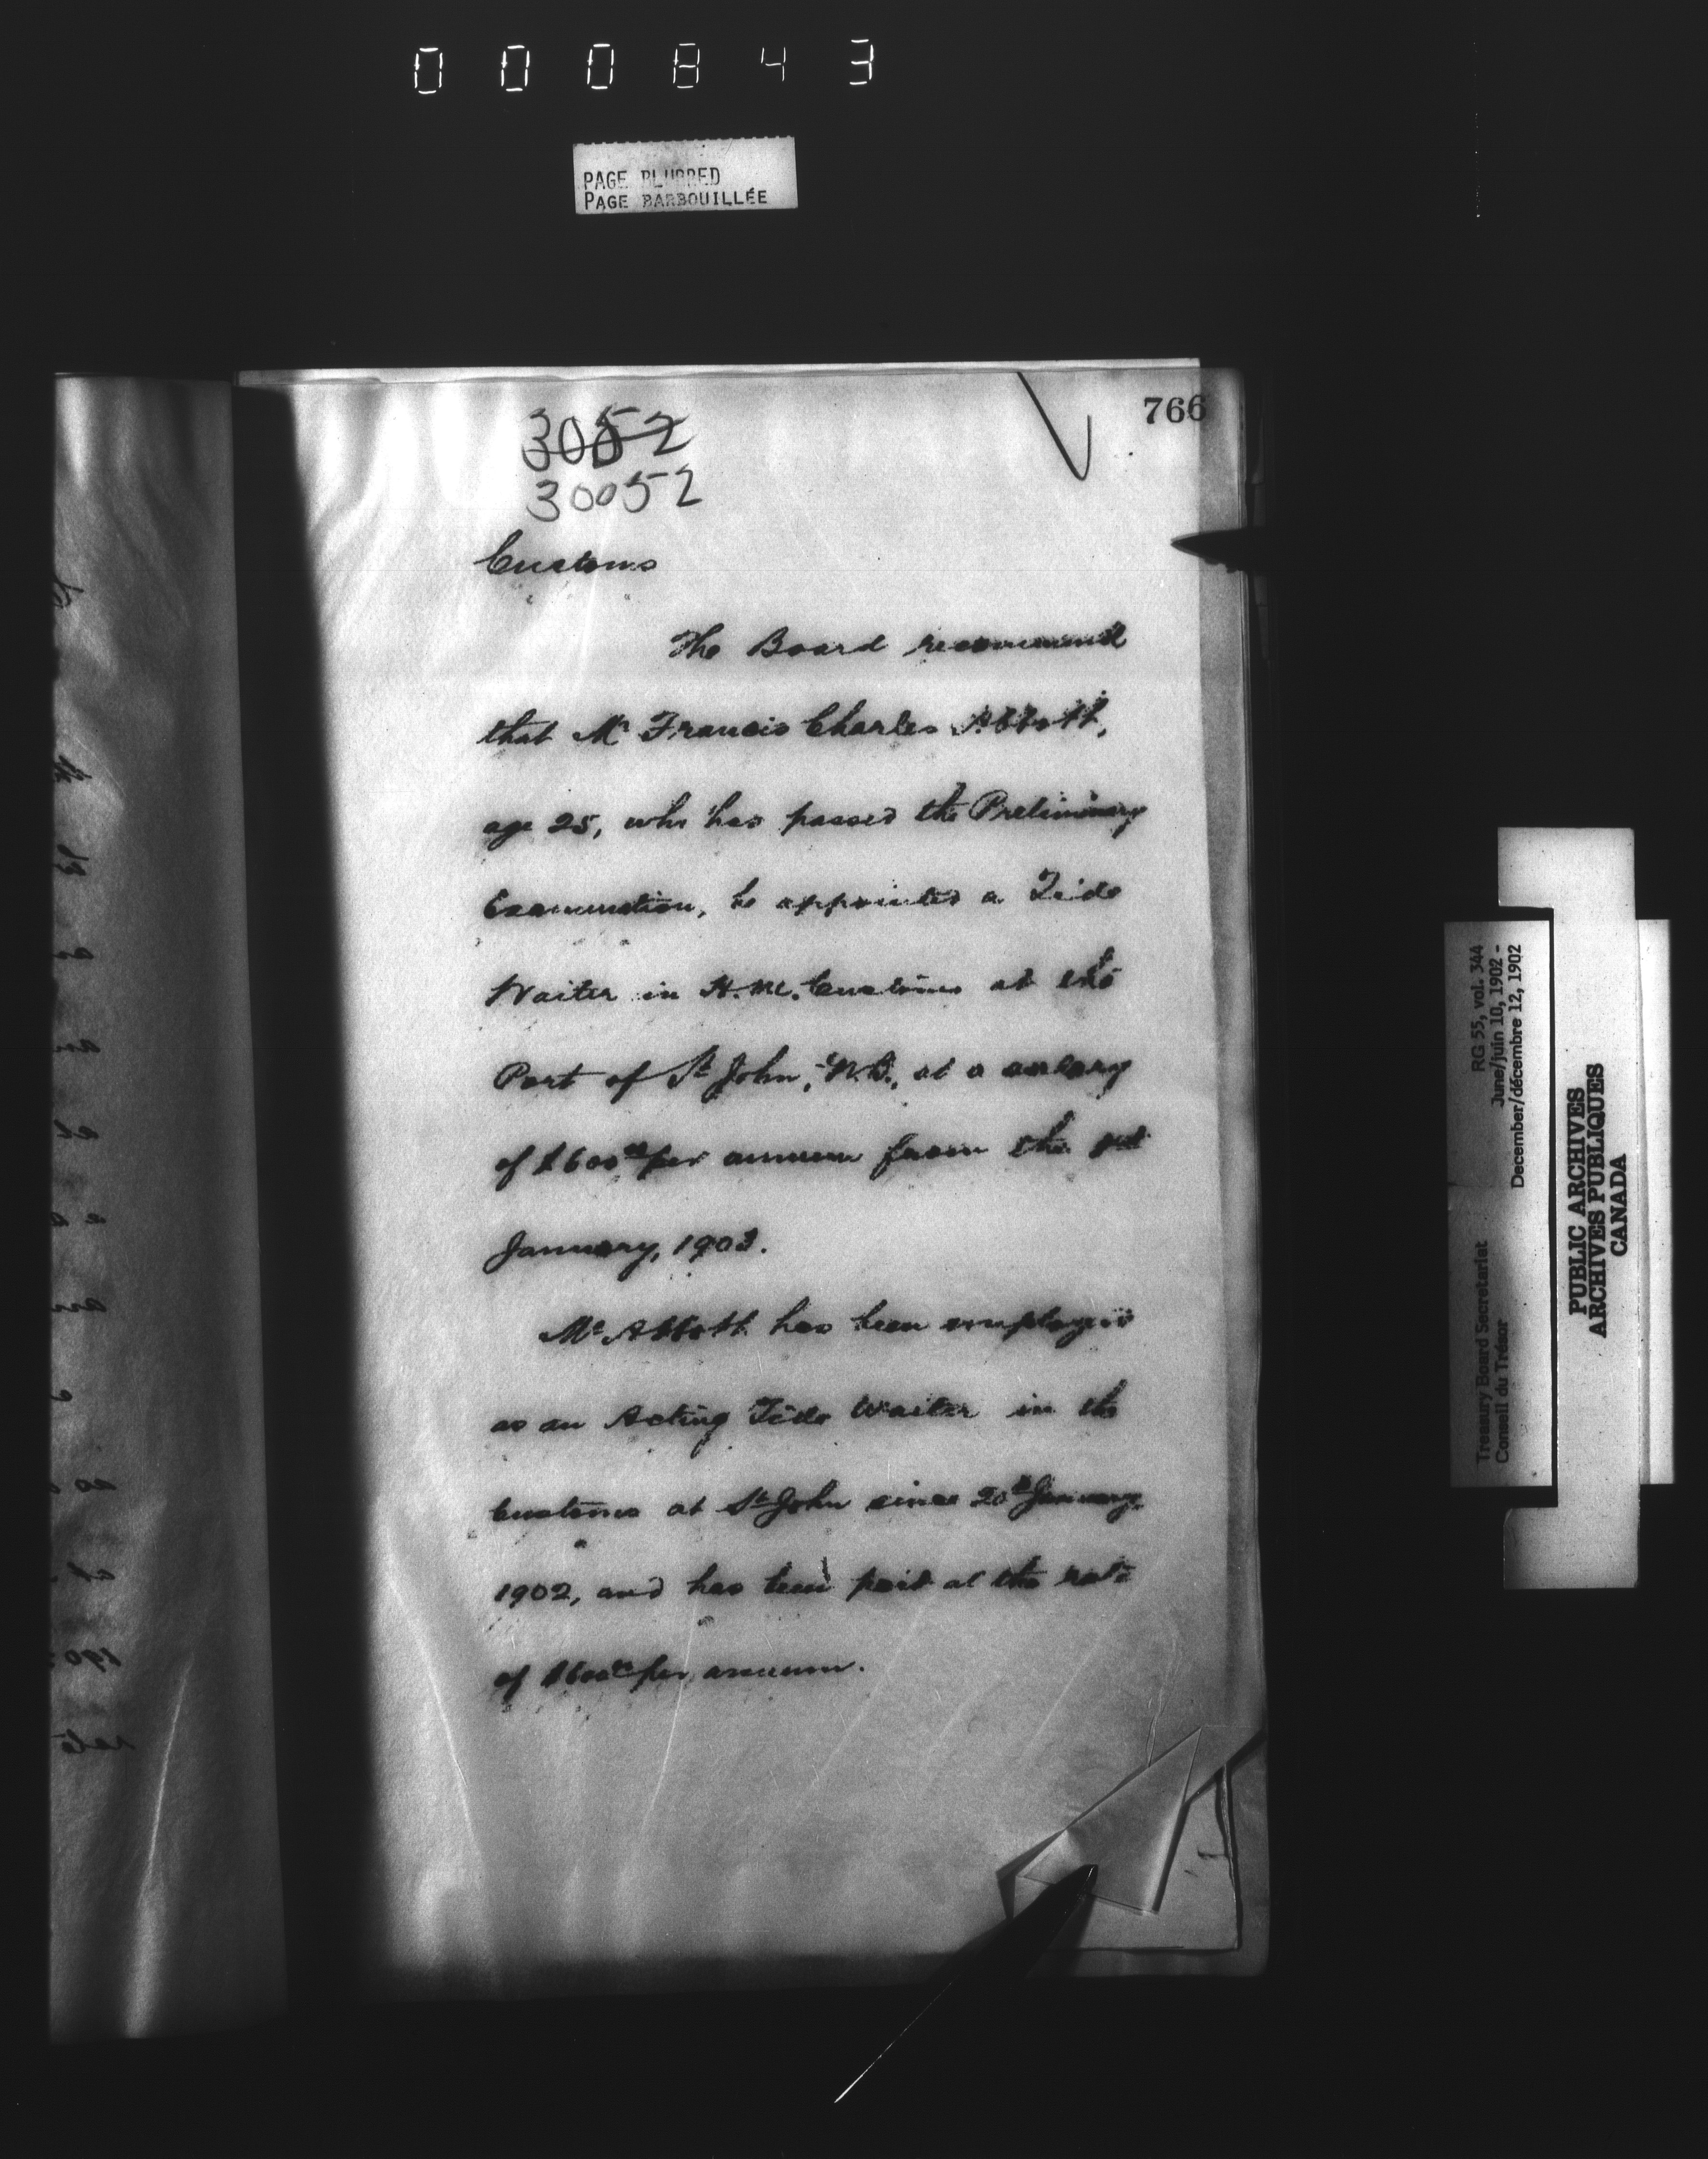 000843
PAGE BLURRED
PAGE BARBOUILLÉE
766
3052
30052
Customs
The Board recommend
that Mr Francis Charles Abbott,
age 25, who has passed the Preliminary
Examination, be appointed a Tide
Waiter in H.M. Customs at the
Port of St John, N.B., at a salary
of $600.00 per annum from the 1st
January, 1903.
Mr Abbott has been employed
as an Acting Tide Waiter in the
Customs at St John since 20th January
1902, and has been paid at the rate
of $600.00 per annum.
RG 55, vol. 344
June/juin 10, 1902 -
December/décembre 12, 1902
Treasury Board Secretariat
Conseil du Trésor
PUBLIC ARCHIVES
ARCHIVES PUBLIQUES
CANADA